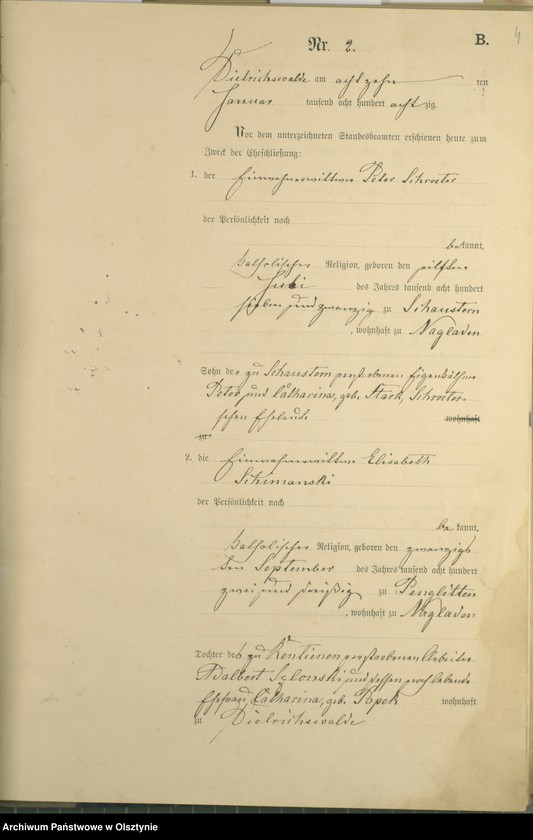 Nr. 2.
B.
4
Dietrichswalde am achtzehn ten
Januar tausend acht hundert achtzig
Vor dem unterzeichneten Standesbeamten erschienen heute zum
Zweck der Eheschließung:
1. der Einwohnerwittwer Peter Schroeter
der Persönlichkeit nach
bekannt,
katholischer Religion, geboren den eilften
Juli des Jahres tausend acht hundert
sieben und zwanzig zu Schaustern
, wohnhaft zu Nagladen
Sohn der zu Schaustern verstorbenen Eigenkäthner
Peter und Catharina, geb. Stark, Schroeter-
schen Eheleute wohnhaft
zu
2. die Einwohnerwittwe Elisabeth
Schimanski
der Persönlichkeit nach
bekannt,
katholischer Religion, geboren den zwanzigs
ten September des Jahres tausend acht hundert
zwei und dreißig zu Penglitten
, wohnhaft zu Nagladen
Tochter des zu Rentienen verstorbenen Arbeiter
Adalbert und dessen noch lebende
Ehefrau, Catharina, geb. Popek wohnhaft
zu Dietrichswalde
Archiwum Państwowe w Olsztynie